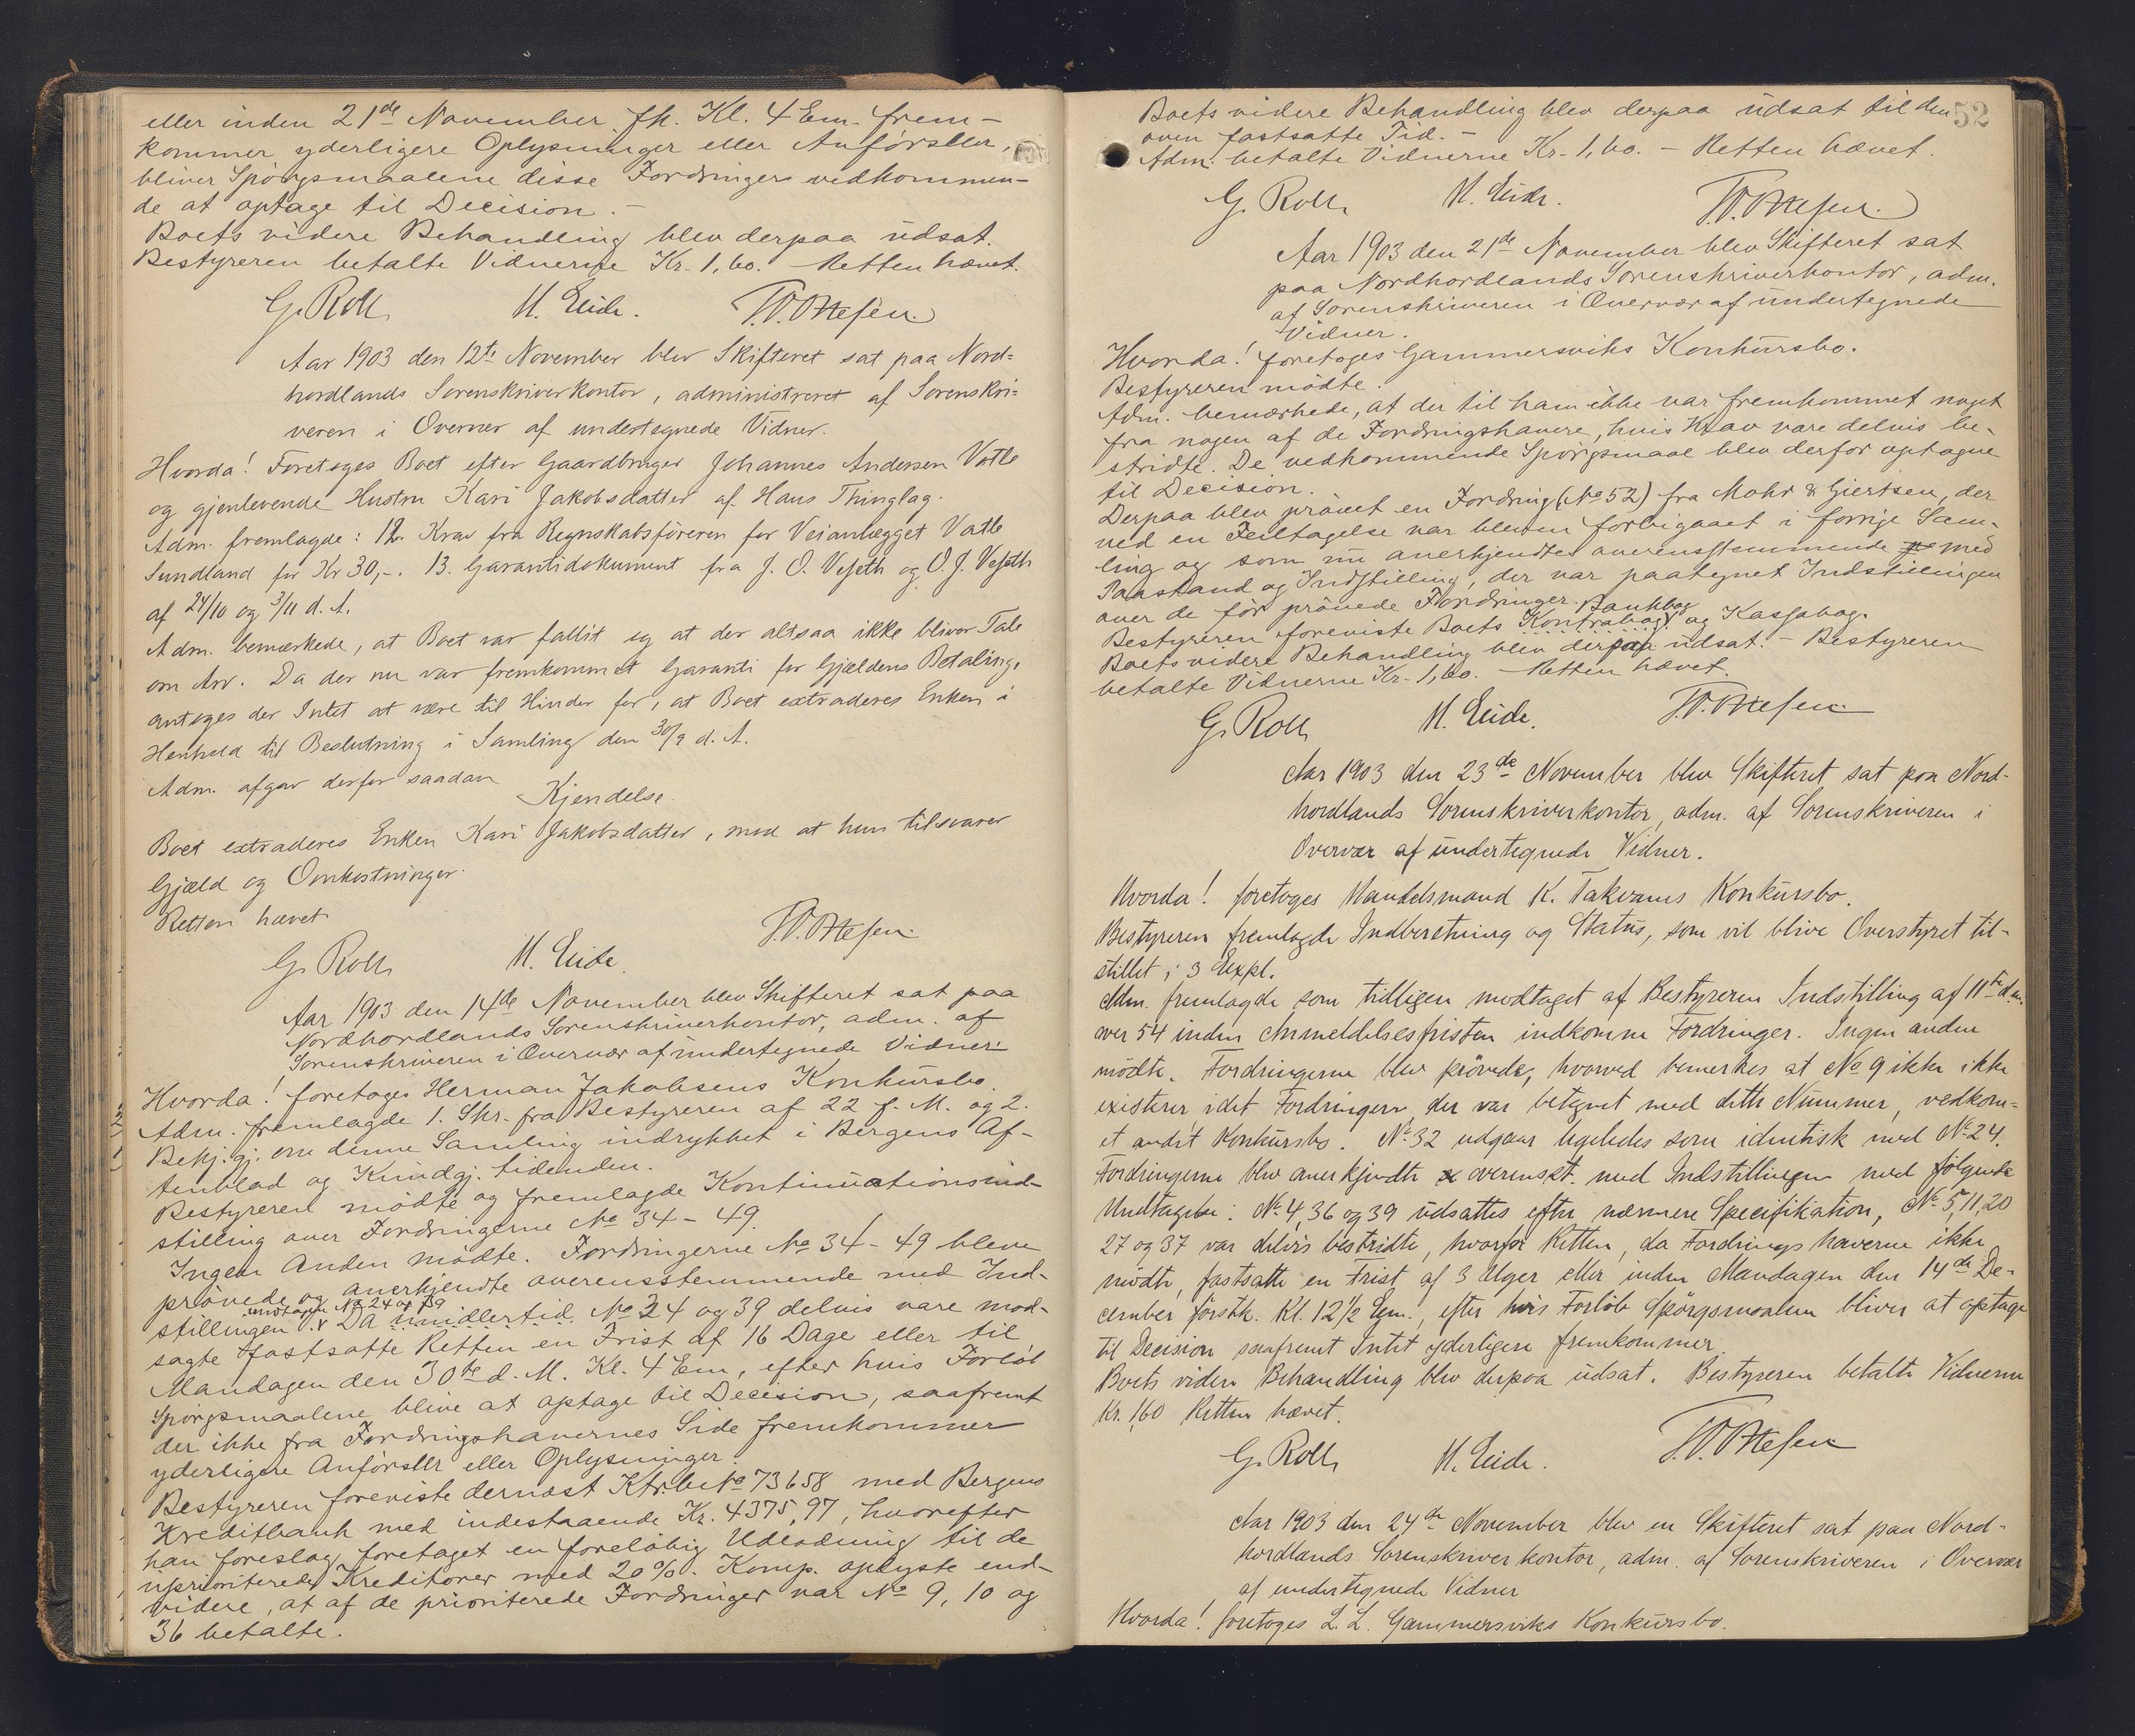 eller inden 21de November fk. Kl. 4 Em. frem-
kommer yderligere Oplysninger eller Anførsler,
bliver Spørgsmaalene disse Fordringer vedkommen-
de at optage til Decision. -
Boets videre Behandling blev derpaa udsat.
Bestyreren betalte Vidnerne Kr. 1,60. Retten hævet.
G. Roll M. Eide.
Aar 1903 den 12te November blev Skifteret sat paa Nord=
hordlands Sorenskriverkontor, administreret af Sorenskri=
veren i Overvær af undertegnede Vidner.
Hvorda! Foretoges Boet efter Gaardbruger Johannes Andersen Vatle
og gjenlevende Hustru Kari Jakobsdatter af Haus Thinglag.
Adm. fremlagde: 12. Krav fra Regnskabsføreren for Veianlægget Vatle
Sundland for Kr 30,-. 13. Garantidokument fra J. O. Veseth og O. J. Veseth
af 24/10 og 3/11 d. A.
Adm. bemærkede, at Boet var fallit og at der altsaa ikke bliver Tale
om Arv. Da der nu var fremkommet Garanti for Gjældens Betaling,
antoges der Intet at være til Hinder for, at Boet extraderes Enken i
Henhold til Beslutning i Samling den 30/9 d. A.
Adm. afgav derfor saadan
Kjendelse.
Boet extraderes Enken Kari Jakobsdatter, mod at hun tilsvarer
Gjæld og Omkostninger.
Retten hævet
G. Roll M. Eide
Aar 1903 den 14de November blev Skifteret sat paa
Nordhordlands Sorenskriverkontor, adm. af
Sorenskriveren i Overvær af undertegnede Vidner.
Hvorda! foretoges Herman Jakobsens Konkursbo.
Adm. fremlagde 1. Skr. fra Bestyreren af 22 f. M. og 2.
Bekj.gj. om denne Samling indrykket i Bergens Af-
tenblad og Kundgj. tidenden.
Bestyreren mødte og fremlagde Kontinuationsind-
stilling over Fordringerne No 34 - 49.
Ingen Anden mødte. Fordringerne No 34 - 49 bleve
prøvede og anerkjendte overensstemmende med Ind-
undtagen No 24 og 39
stillingen. Da imidlertid No 24 og 39 delvis vare mod-
sagte fastsatte Retten en Frist af 16 Dage eller til
Mandagen den 30te d. M. Kl. 4 Em, efter hvis Forløb
Spørgsmaalene blive at optage til Decision, saafremt
der ikke fra Fordringshavernes Side fremkommer
yderligere Anførsler eller Oplysninger.
Bestyreren foreviste dernæst Ktr.bc No 73658 med Bergens
Kreditbank med indestaaende Kr. 4375,97, hvorefter
han foreslog foretaget en foreløbig Udlodning til de
uprioriterede Kreditorer med 20%. Komp. oplyste end-
videre, at af de prioriterede Fordringer var No 9, 10 og
36 betalte.
52
Boets videre Behandling blev derpaa udsat til den
oven fastsatte Tid. -
Adm. betalte Vidnerne Kr. 1,60. - Retten hævet.
G. Roll M. Eide.
Aar 1903 den 21de November blev Skifteret sat
paa Nordhordlands Sorenskriverkontor, adm.
af Sorenskriveren i Overvær af undertegnede
Vidner.
Hvorda! foretoges Gammersviks Konkursbo.
Bestyreren mødte.
Adm. bemærkede, at der til ham ikke var fremkommet noget
fra nogen af de Fordringshavere, hvis Krav vare delvis be-
stridte. De vedkommende Spørgsmaal blev derfor optagne
til Decision.
Derpaa blev prøvet en Fordring (No 52) fra Mohr & Giertsen, der
ved en Feiltagelse var bleven forbigaaet i forrige Sam-
ling og som nu anerkjendtes overensstemmende med
Paastand og Indstilling, der var paategnet Indstillingen
over de før prøvede Fordringer.
Bankbog
Bestyreren foreviste Boets Kontrabog og Kassabog.
Boets videre Behandling blev derpaa udsat. - Bestyreren
betalte Vidnerne Kr. 1,60. Retten hævet.
G. Roll M. Eide.
Aar 1903 den 23de November blev Skifteret sat paa Nord-
hordlands Sorenskriverkontor, adm. af Sorenskriveren i
Overvær af undertegnede Vidner.
Hvorda! foretoges Handelsmand K. Takvams Konkursbo.
Bestyreren fremlagde Indberetning og Status, som vil blive Overstyret til-
stillet i 3 Expl.
Adm. fremlagde som tidligere modtaget af Bestyreren Indstilling af 11te d.m.
over 54 inden Anmeldelsesfristen indkomne Fordringer. Ingen anden
mødte. Fordringerne blev prøvede, hvorved bemerkes at No 9 ikke ikke
existerer idet Fordringen, der var betegnet med dette Nummer, vedkom=
et andet Konkursbo. No 32 udgaar ligeledes som identisk med No 24.
Fordringerne blev anerkjendte overenskst. med Indstillingen med følgende
Undtagelse: No 4, 36 og 39 udsattes efter nærmere Specifikation, No 5, 11, 20
27 og 37 var delvis bestridte, hvorfor Retten, da Fordringshaverne ikke
mødte, fastsatte en Frist af 3 Uger eller inden Mandagen den 14de De-
cember førstk. Kl. 12½ Em., efter hvis Forløb Spørgsmaalene bliver at optage
til Decision saafremt Intet yderligere fremkommer.
Boets videre Behandling blev derpaa udsat. Bestyreren betalte Vidnerne
Kr. 1,60 Retten hævet.
G. Roll M. Eide.
Aar 1903 den 24de November blev en Skifteret sat paa Nord-
hordlands Sorenskriverkontor, adm. af Sorenskriveren i Overvær
af undertegnede Vidner
Hvorda! foretoges L. L. Gammersviks Konkursbo.